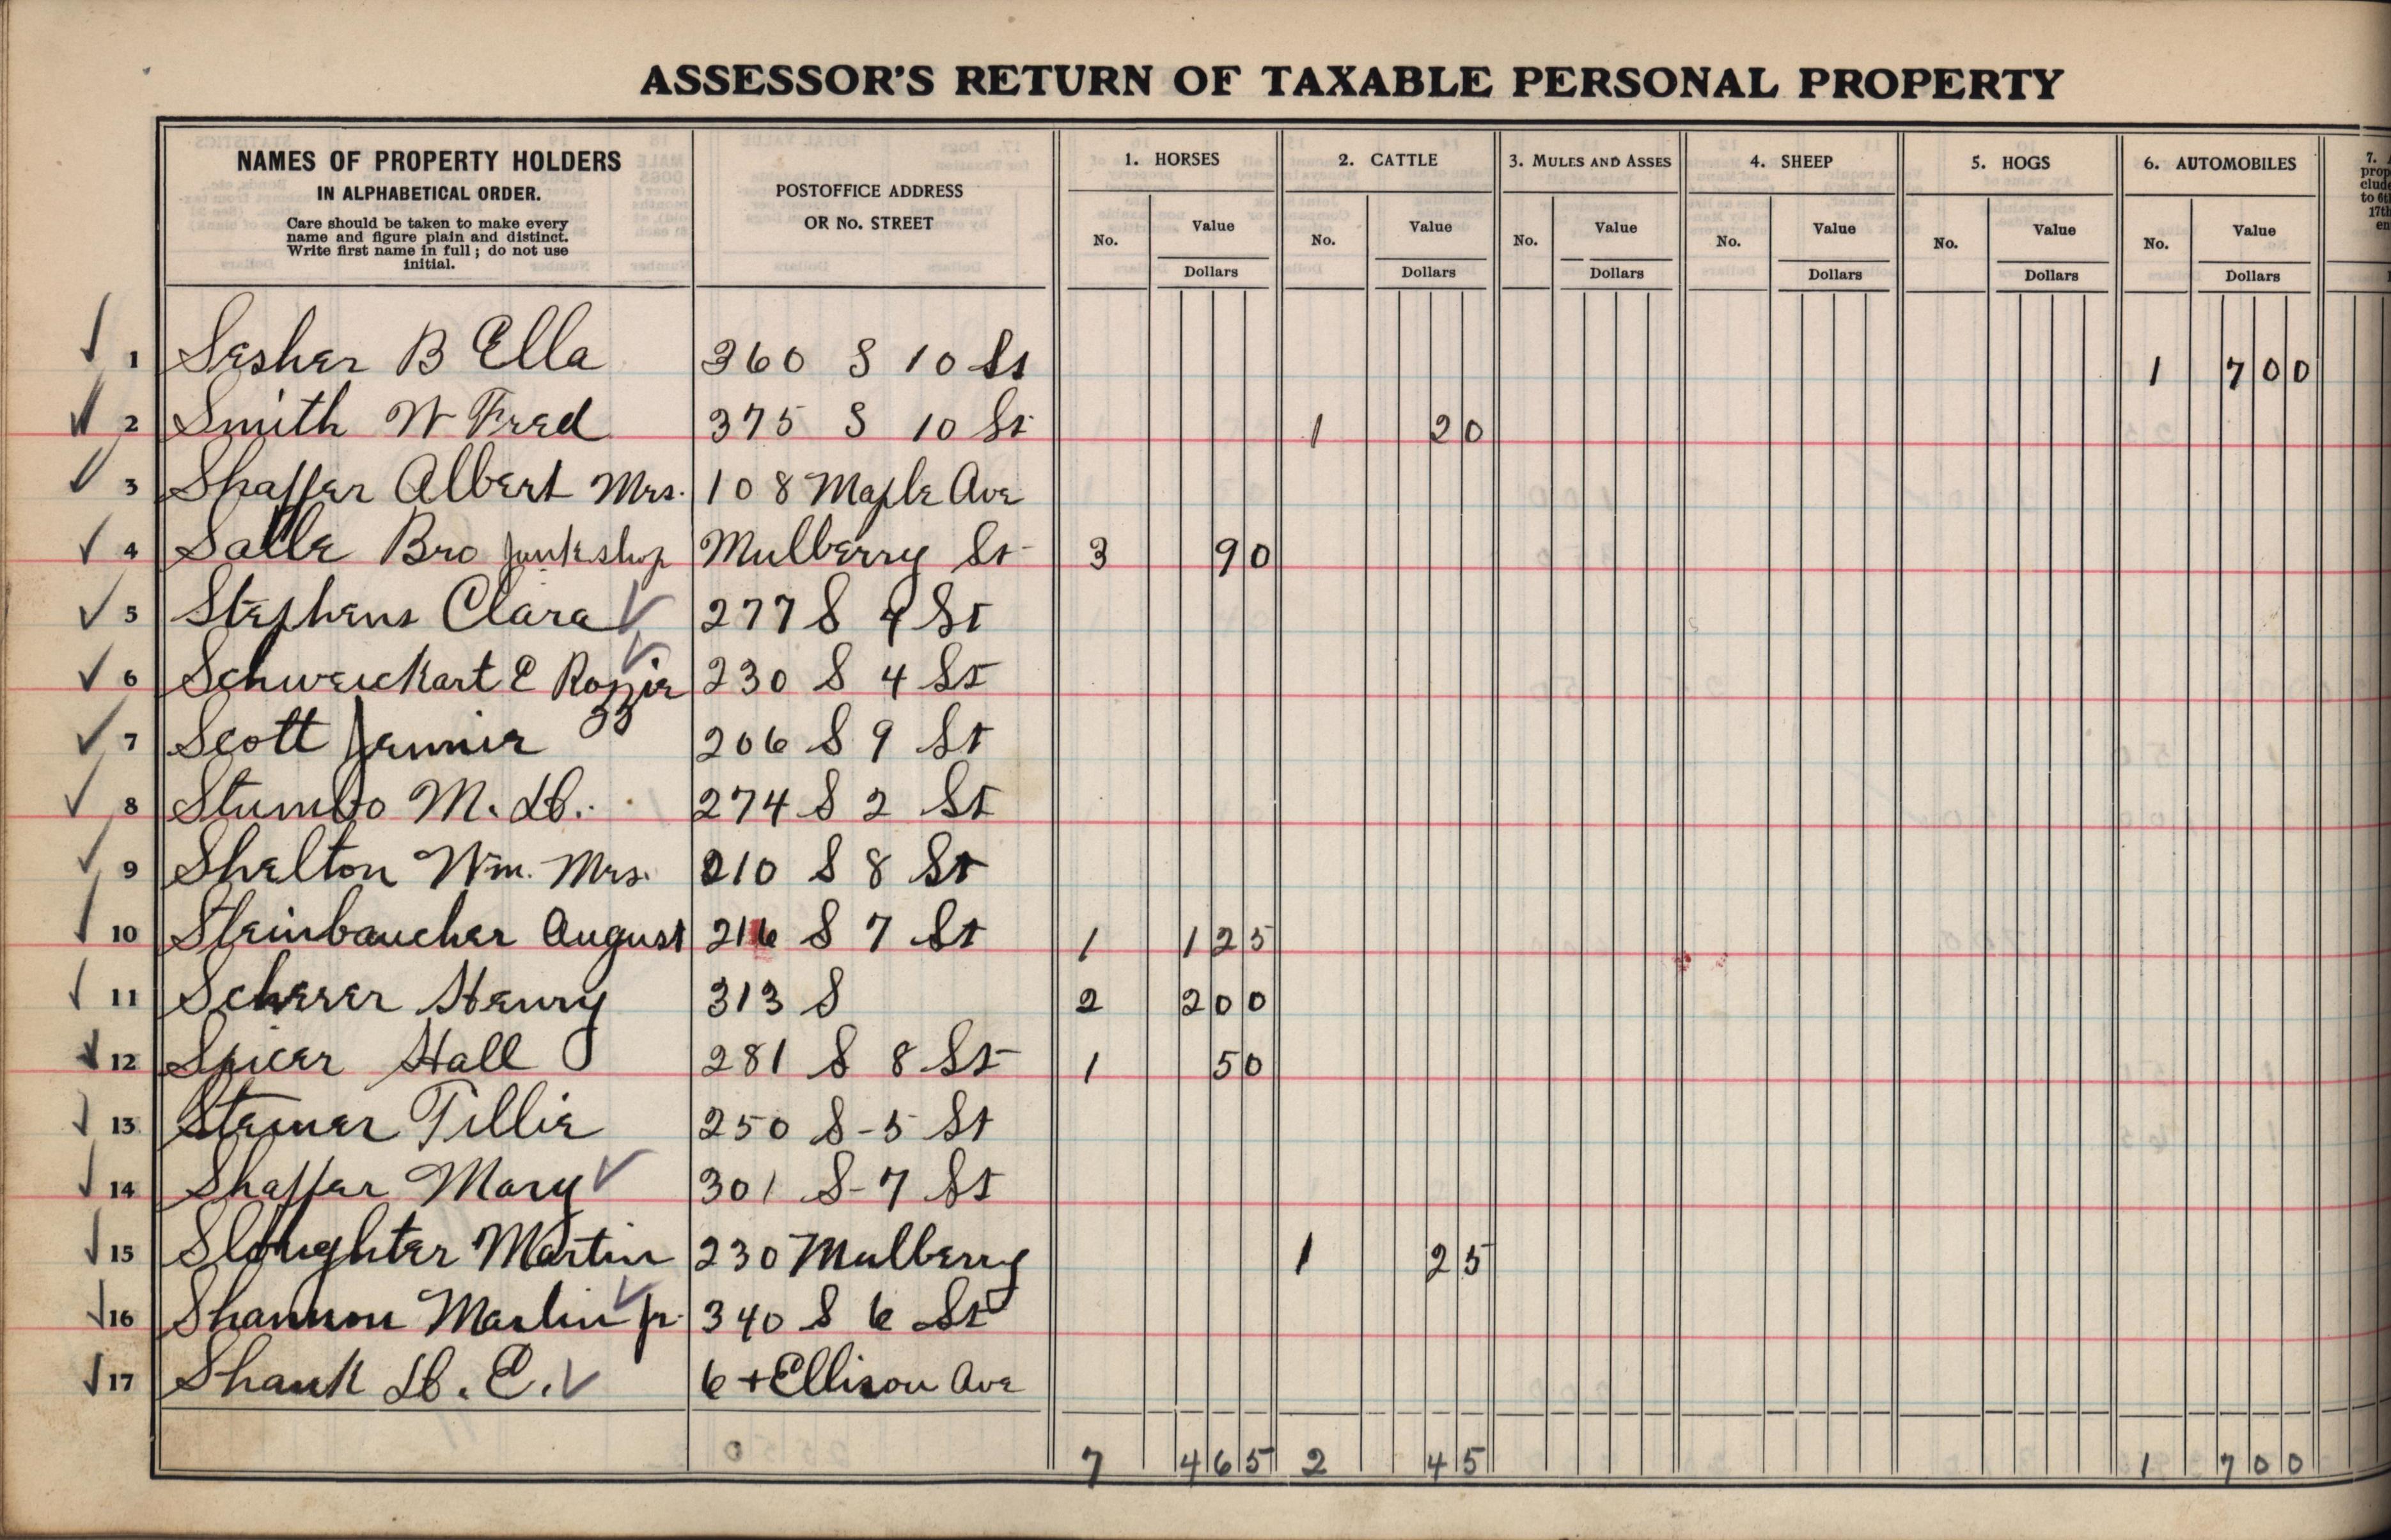 ASSESSOR'S RETURN OF TAXABLE PERSONAL PROPERTY
NAMES OF PROPERTY HOLDERS
IN ALPHABETICAL ORDER.
Care should be taken to make every
name and figure plain and distinct.
Write first name in full; do not use
initial.
POSTOFFICE ADDRESS
OR No. STREET
1. HORSES 2. CATTLE 3. MULES AND ASSES 4. SHEEP 5. HOGS 6. AUTOMOBILES 7.
No. Value No. Value No. Value No. Value No. Value No. Value
Dollars Dollars Dollars Dollars Dollars Dollars
1 Sesher B Ella 360 S 10 St 1 700
2 Smith W Fred 375 S 10 St 1 20
3 Shaffer Albert Mrs. 108 Maple Ave
4 Salle Bro Junkshop Mulberry St 3 90
5 Stephens Clara 277 S 4 St
6 Schweickart E Rozzie 230 S 4 St
7 Scott Jennie 206 S 9 St
8 Stumbo M. H. 274 S 2 St
9 Shelton Wm. Mrs. 210 S 8 St
10 Steinbaucher August 216 S 7 St 1 125
11 Scherer Henry 313 S 2 200
12 Spicer Hall 281 S 8 St 1 50
13 Steiner Tillie 250 S-5 St
14 Shaffer Mary 301 S-7 St
15 Sloughter Martin 230 Mulberry 1 25
16 Shannon Martin Jr. 340 S 6 St
17 Shank H. E. 6 + Ellison Ave
7 465 2 45 1 700